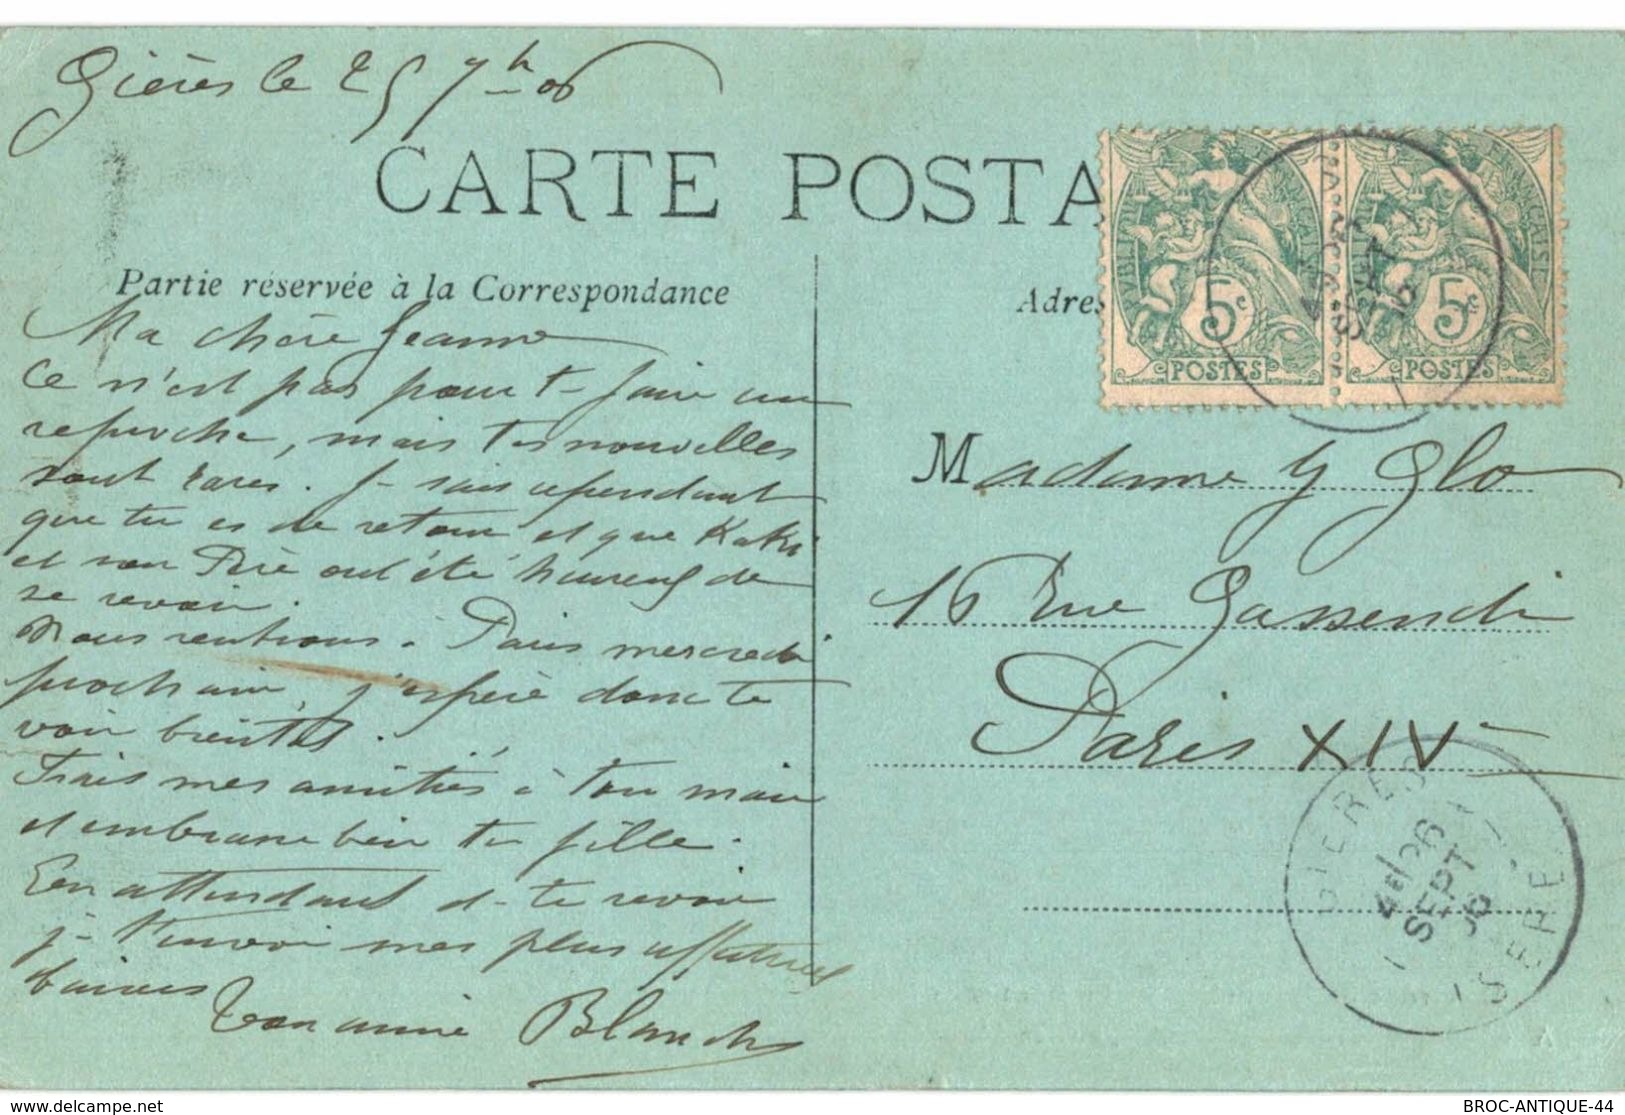 Gières le 25 7bre 06
CARTE POSTA
Partie réservée à la Correspondance
Adres
Ma chère Jeanne
Ce n'est pas pour te faire un
reproche, mais tes nouvelles
sont rares. Je sais cependant
que tu es de retour et que
et son Père ont été heureux de
se revoir.
Nous rentrons à Paris mercredi
prochain, j'espère donc te
voir bientôt.
Fais mes amitiés à ton mari
et embrasse bien ta fille.
En attendant de te revoir
je t'envoie mes plus affectueux
baisers
Ton amie Blanche
RÉPUBLIQUE FRANÇAISE
5c 5c
POSTES POSTES
Madame Y Glo
16 Rue Gassendi
Paris XIVe
GIERES
26
SEPT
06
ISERE
delcampe.net
BROC-ANTIQUE-44